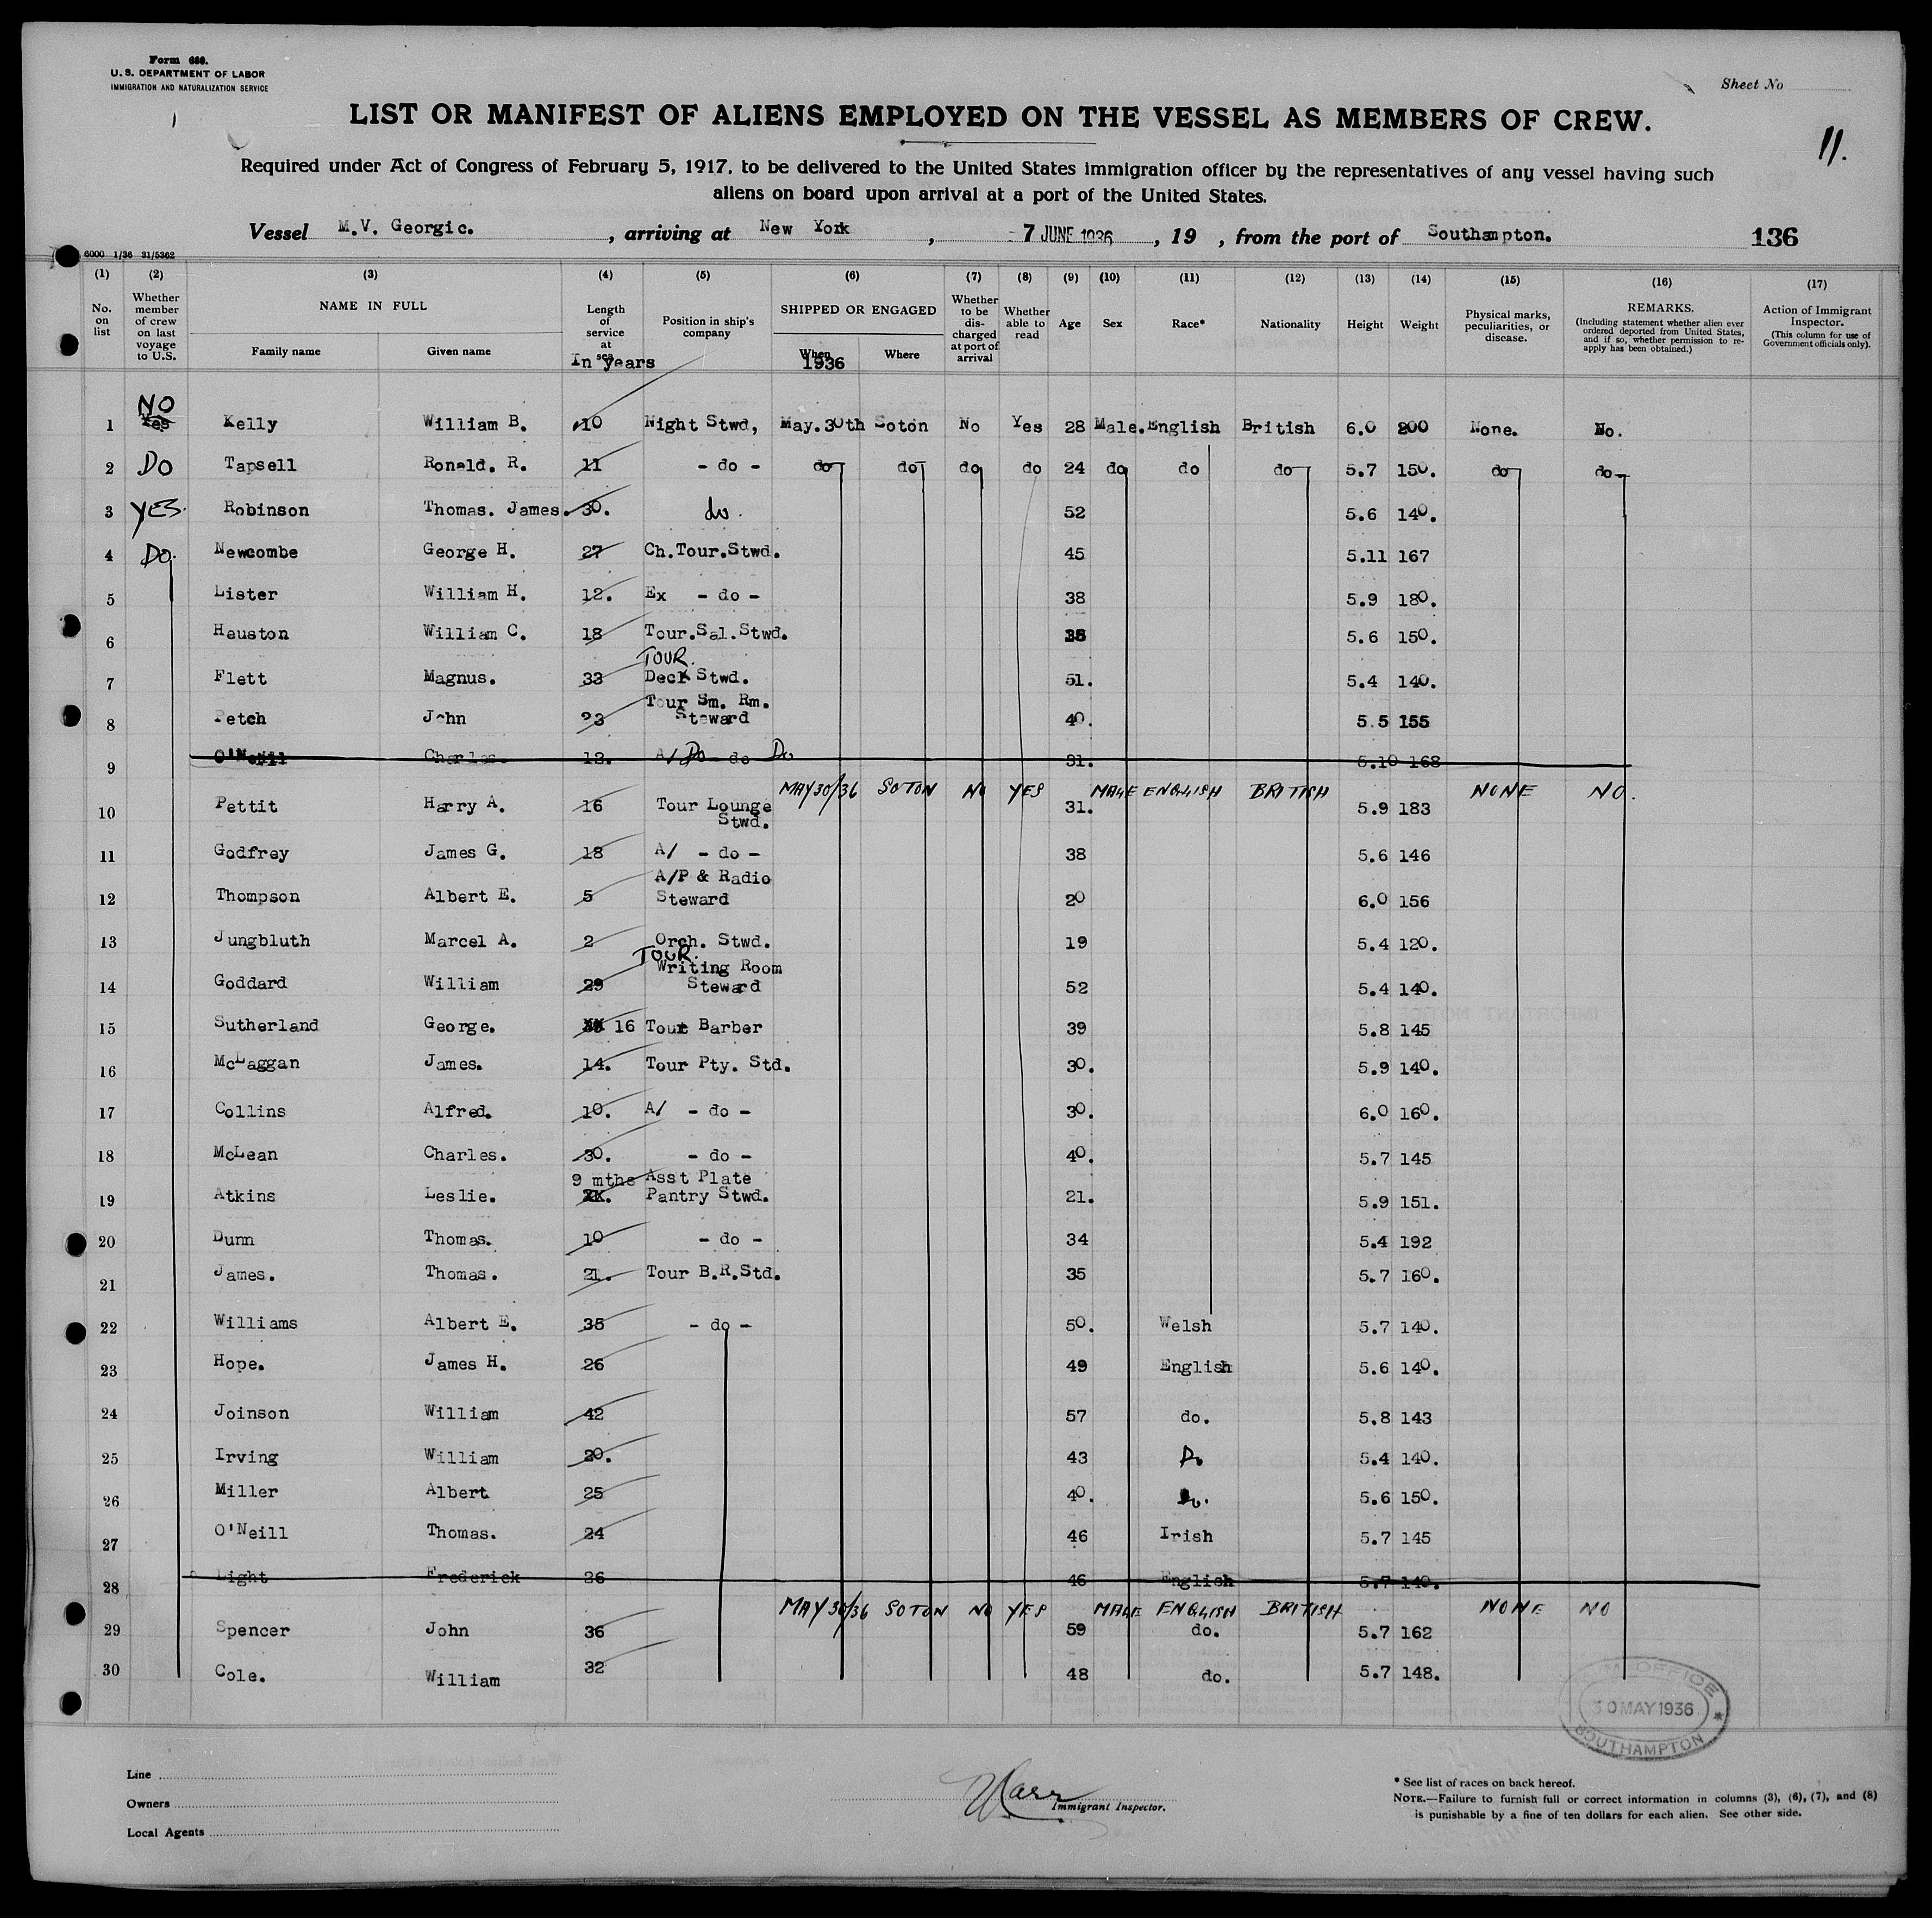 Form 680.
U. S. DEPARTMENT OF LABOR
IMMIGRATION AND NATURALIZATION SERVICE
Sheet No
LIST OR MANIFEST OF ALIENS EMPLOYED ON THE VESSEL AS MEMBERS OF CREW.
11.
Required under Act of Congress of February 5, 1917, to be delivered to the United States immigration officer by the representatives of any vessel having such
aliens on board upon arrival at a port of the United States.
Vessel M.V. Georgic. , arriving at New York , 7 JUNE 1936 , 19 , from the port of Southampton. 136
6000 1/36 31/5362
(1) (2) (3) (4) (5) (6) (7) (8) (9) (10) (11) (12) (13) (14) (15) (16) (17)
No. on list Whether member of crew on last voyage to U.S. NAME IN FULL Family name Given name Length of service at sea In years Position in ship's company SHIPPED OR ENGAGED When 1936 Where Whether to be discharged at port of arrival Whether able to read Age Sex Race* Nationality Height Weight Physical marks, peculiarities, or disease. REMARKS. (Including statement whether alien ever ordered deported from United States, and if so, whether permission to re-apply has been obtained.) Action of Immigrant Inspector. (This column for use of Government officials only).
NO
1 Yes Kelly William B. 10 Night Stwd, May.30th Soton No Yes 28 Male. English British 6.0 200 None. No.
2 DO Tapsell Ronald. R. 11 - do - do do do do 24 do do do 5.7 150. do do
3 YES. Robinson Thomas. James. 30. do. 52 5.6 140.
4 Do. Newcombe George H. 27 Ch.Tour.Stwd. 45 5.11 167
5 Lister William H. 12. Ex - do - 38 5.9 180.
6 Heuston William C. 18 Tour.Sal.Stwd. 5.6 150.
TOUR.
7 Flett Magnus. 33 Deck Stwd. 51. 5.4 140.
8 Petch John 23 Tour Sm. Rm. Steward 40. 5.5 155
9 O'Neill Charles 12. A/ Do do Do 31. 5.10 168
MAY 30/36 SOTON NO YES MALE ENGLISH BRITISH NONE NO.
10 Pettit Harry A. 16 Tour Lounge Stwd. 31. 5.9 183
11 Godfrey James G. 18 A/ - do - 38 5.6 146
12 Thompson Albert E. 5 A/P & Radio Steward 20 6.0 156
13 Jungbluth Marcel A. 2 Orch. Stwd. 19 5.4 120.
TOUR.
14 Goddard William 29 Writing Room Steward 52 5.4 140.
15 Sutherland George. 16 Tour Barber 39 5.8 145
16 McLaggan James. 14. Tour Pty. Std. 30. 5.9 140.
17 Collins Alfred. 10. A/ - do - 30. 6.0 160.
18 McLean Charles. 30. - do - 40. 5.7 145
19 Atkins Leslie. 9 mths Asst Plate Pantry Stwd. 21. 5.9 151.
20 Dunn Thomas. 10 - do - 34 5.4 192
21 James. Thomas. 21. Tour B.R.Std. 35 5.7 160.
22 Williams Albert E. 35 - do - 50. Welsh 5.7 140.
23 Hope. James H. 26 49 English 5.6 140.
24 Joinson William 42 57 do. 5.8 143
25 Irving William 20. 43 Do 5.4 140.
26 Miller Albert 25 40. Do. 5.6 150.
27 O'Neill Thomas. 24 46 Irish 5.7 145
28 Light Frederick 26 46 English 5.7 140.
MAY 30/36 SOTON NO YES MALE ENGLISH BRITISH NONE NO
29 Spencer John 36 59 do. 5.7 162
30 Cole. William 32 48 do. 5.7 148.
OFFICE
30 MAY 1936
SOUTHAMPTON
Line
Owners
Local Agents
Immigrant Inspector.
* See list of races on back hereof.
NOTE.—Failure to furnish full or correct information in columns (3), (6), (7), and (8)
is punishable by a fine of ten dollars for each alien. See other side.